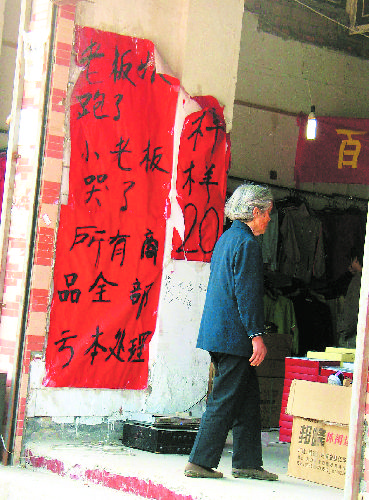 老板
跑了
小老板
哭了
所有商
品全部
亏本处理
样
样
20
百